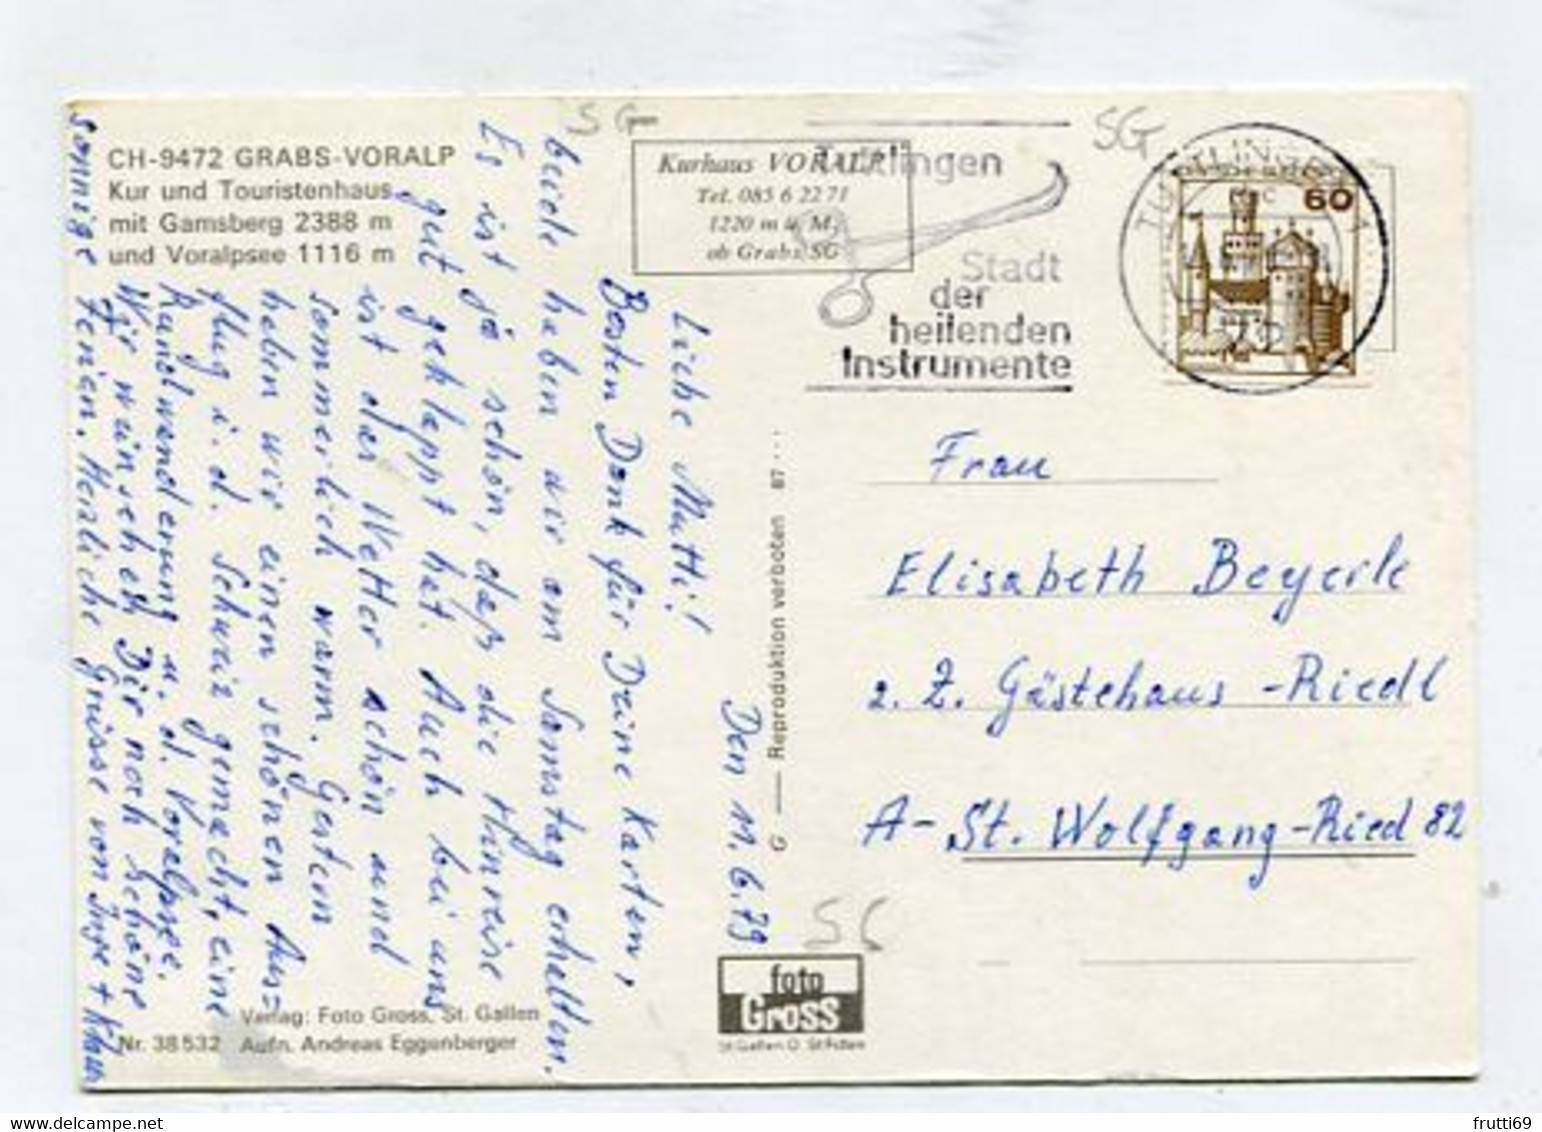 CH-9472 GRABS-VORALP
Kur und Touristenhaus
mit Gamsberg 2388 m
und Voralpsee 1116 m
SG
Kurhaus VORALP
Tel. 085 6 22 71
1220 m ü. M.
ob Grabs SG
Tuttlingen
Stadt
der
heilenden
Instrumente
SG
TUTTLINGEN 1
60
Den 11.6.79
Liebe Mutti!
Besten Dank für Deine Karten,
beide haben wir am Samstag erhalten.
Es ist ja schön, daß die Hinreise
gut geklappt hat. Auch bei uns
ist das Wetter schön und
sommerlich warm. Gestern
haben wir einen schönen Aus=
flug i. d. Schweiz gemacht, eine
Rundwanderung u. d. Voralpsee.
Wir wünschen Dir noch schöne
sonnige Ferien. Herzliche Grüsse von Inge + Klaus
G — Reproduktion verboten 87 ...
Frau
Elisabeth Beyerle
z. Z. Gästehaus - Riedl
A- St. Wolfgang-Ried 82
SG
foto
Gross
St. Gallen O. St. Fiden
Verlag: Foto Gross, St. Gallen
Nr. 38 532 Aufn. Andreas Eggenberger
frutti69